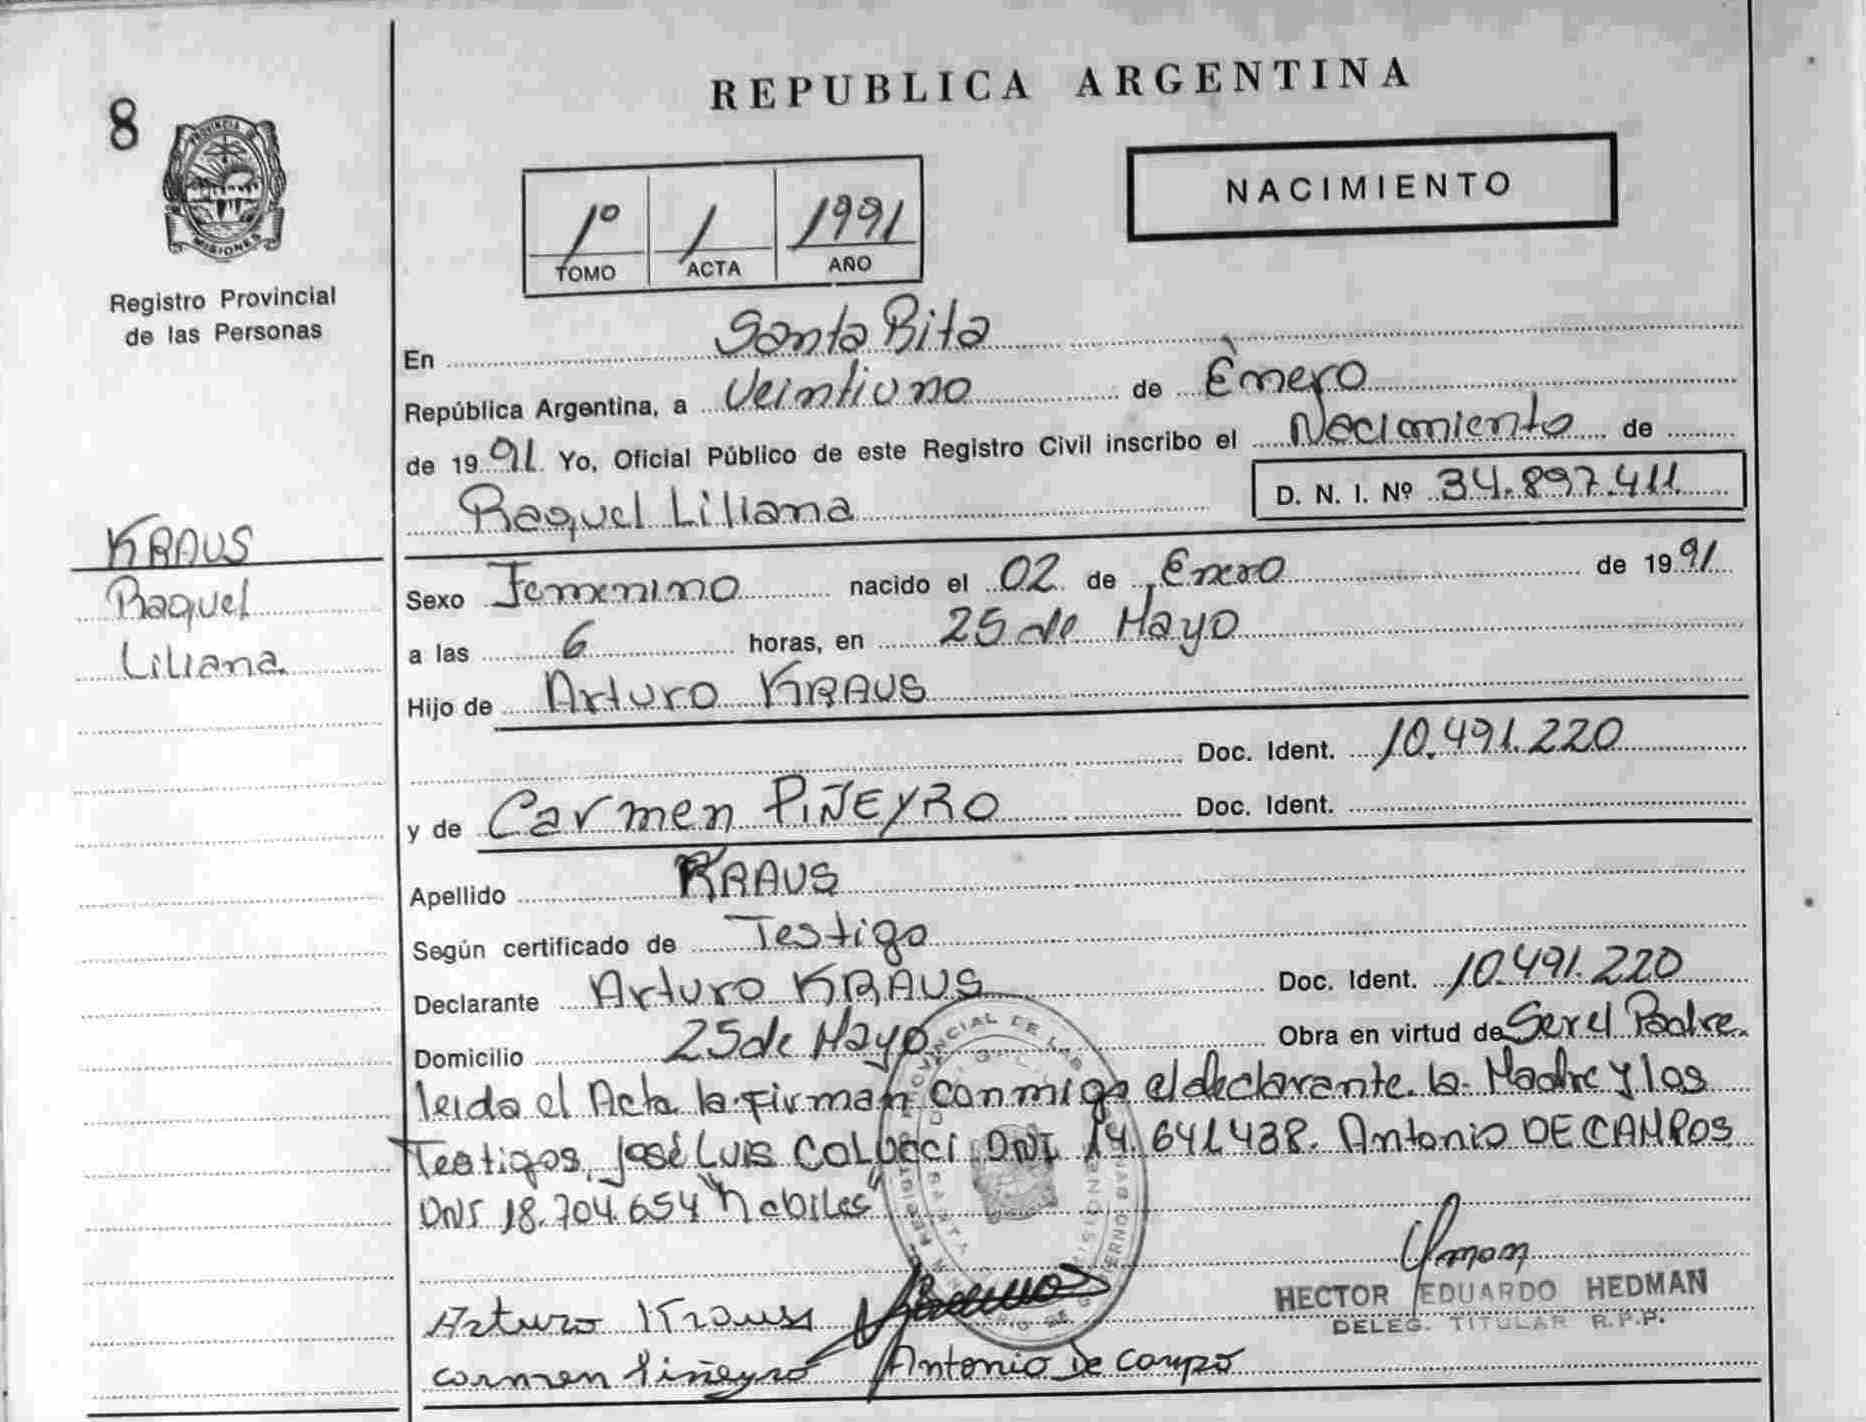 REPUBLICA ARGENTINA
8
PROVINCIA DE
MISIONES
Registro Provincial
de las Personas
NACIMIENTO
1º 1 1991
TOMO ACTA AÑO
En Santa Rita
República Argentina, a veintiuno de Enero
de 1991 Yo, Oficial Público de este Registro Civil inscribo el Nacimiento de
Raquel Liliana D. N. I. Nº 34.897.411
KRAUS
Raquel
Liliana
Sexo Femenino nacido el 02 de Enero de 1991
a las 6 horas, en 25 de Mayo
Hijo de Arturo KRAUS
Doc. Ident. 10.491.220
y de Carmen PIÑEYRO Doc. Ident.
Apellido KRAUS
Según certificado de Testigo
Declarante Arturo KRAUS Doc. Ident. 10.491.220
Domicilio 25 de Mayo Obra en virtud de Ser el Padre.
leida el Acta la Firman conmigo el declarante. la Madre y los
Testigos, José Luis COLUCCI DNI 14.641438. Antonio DE CAMPOS
DNI 18.704.654 "habiles"
HECTOR EDUARDO HEDMAN
DELEG. TITULAR R.P.P.
Arturo Krauss
Carmen Piñeyro Antonio De Campo